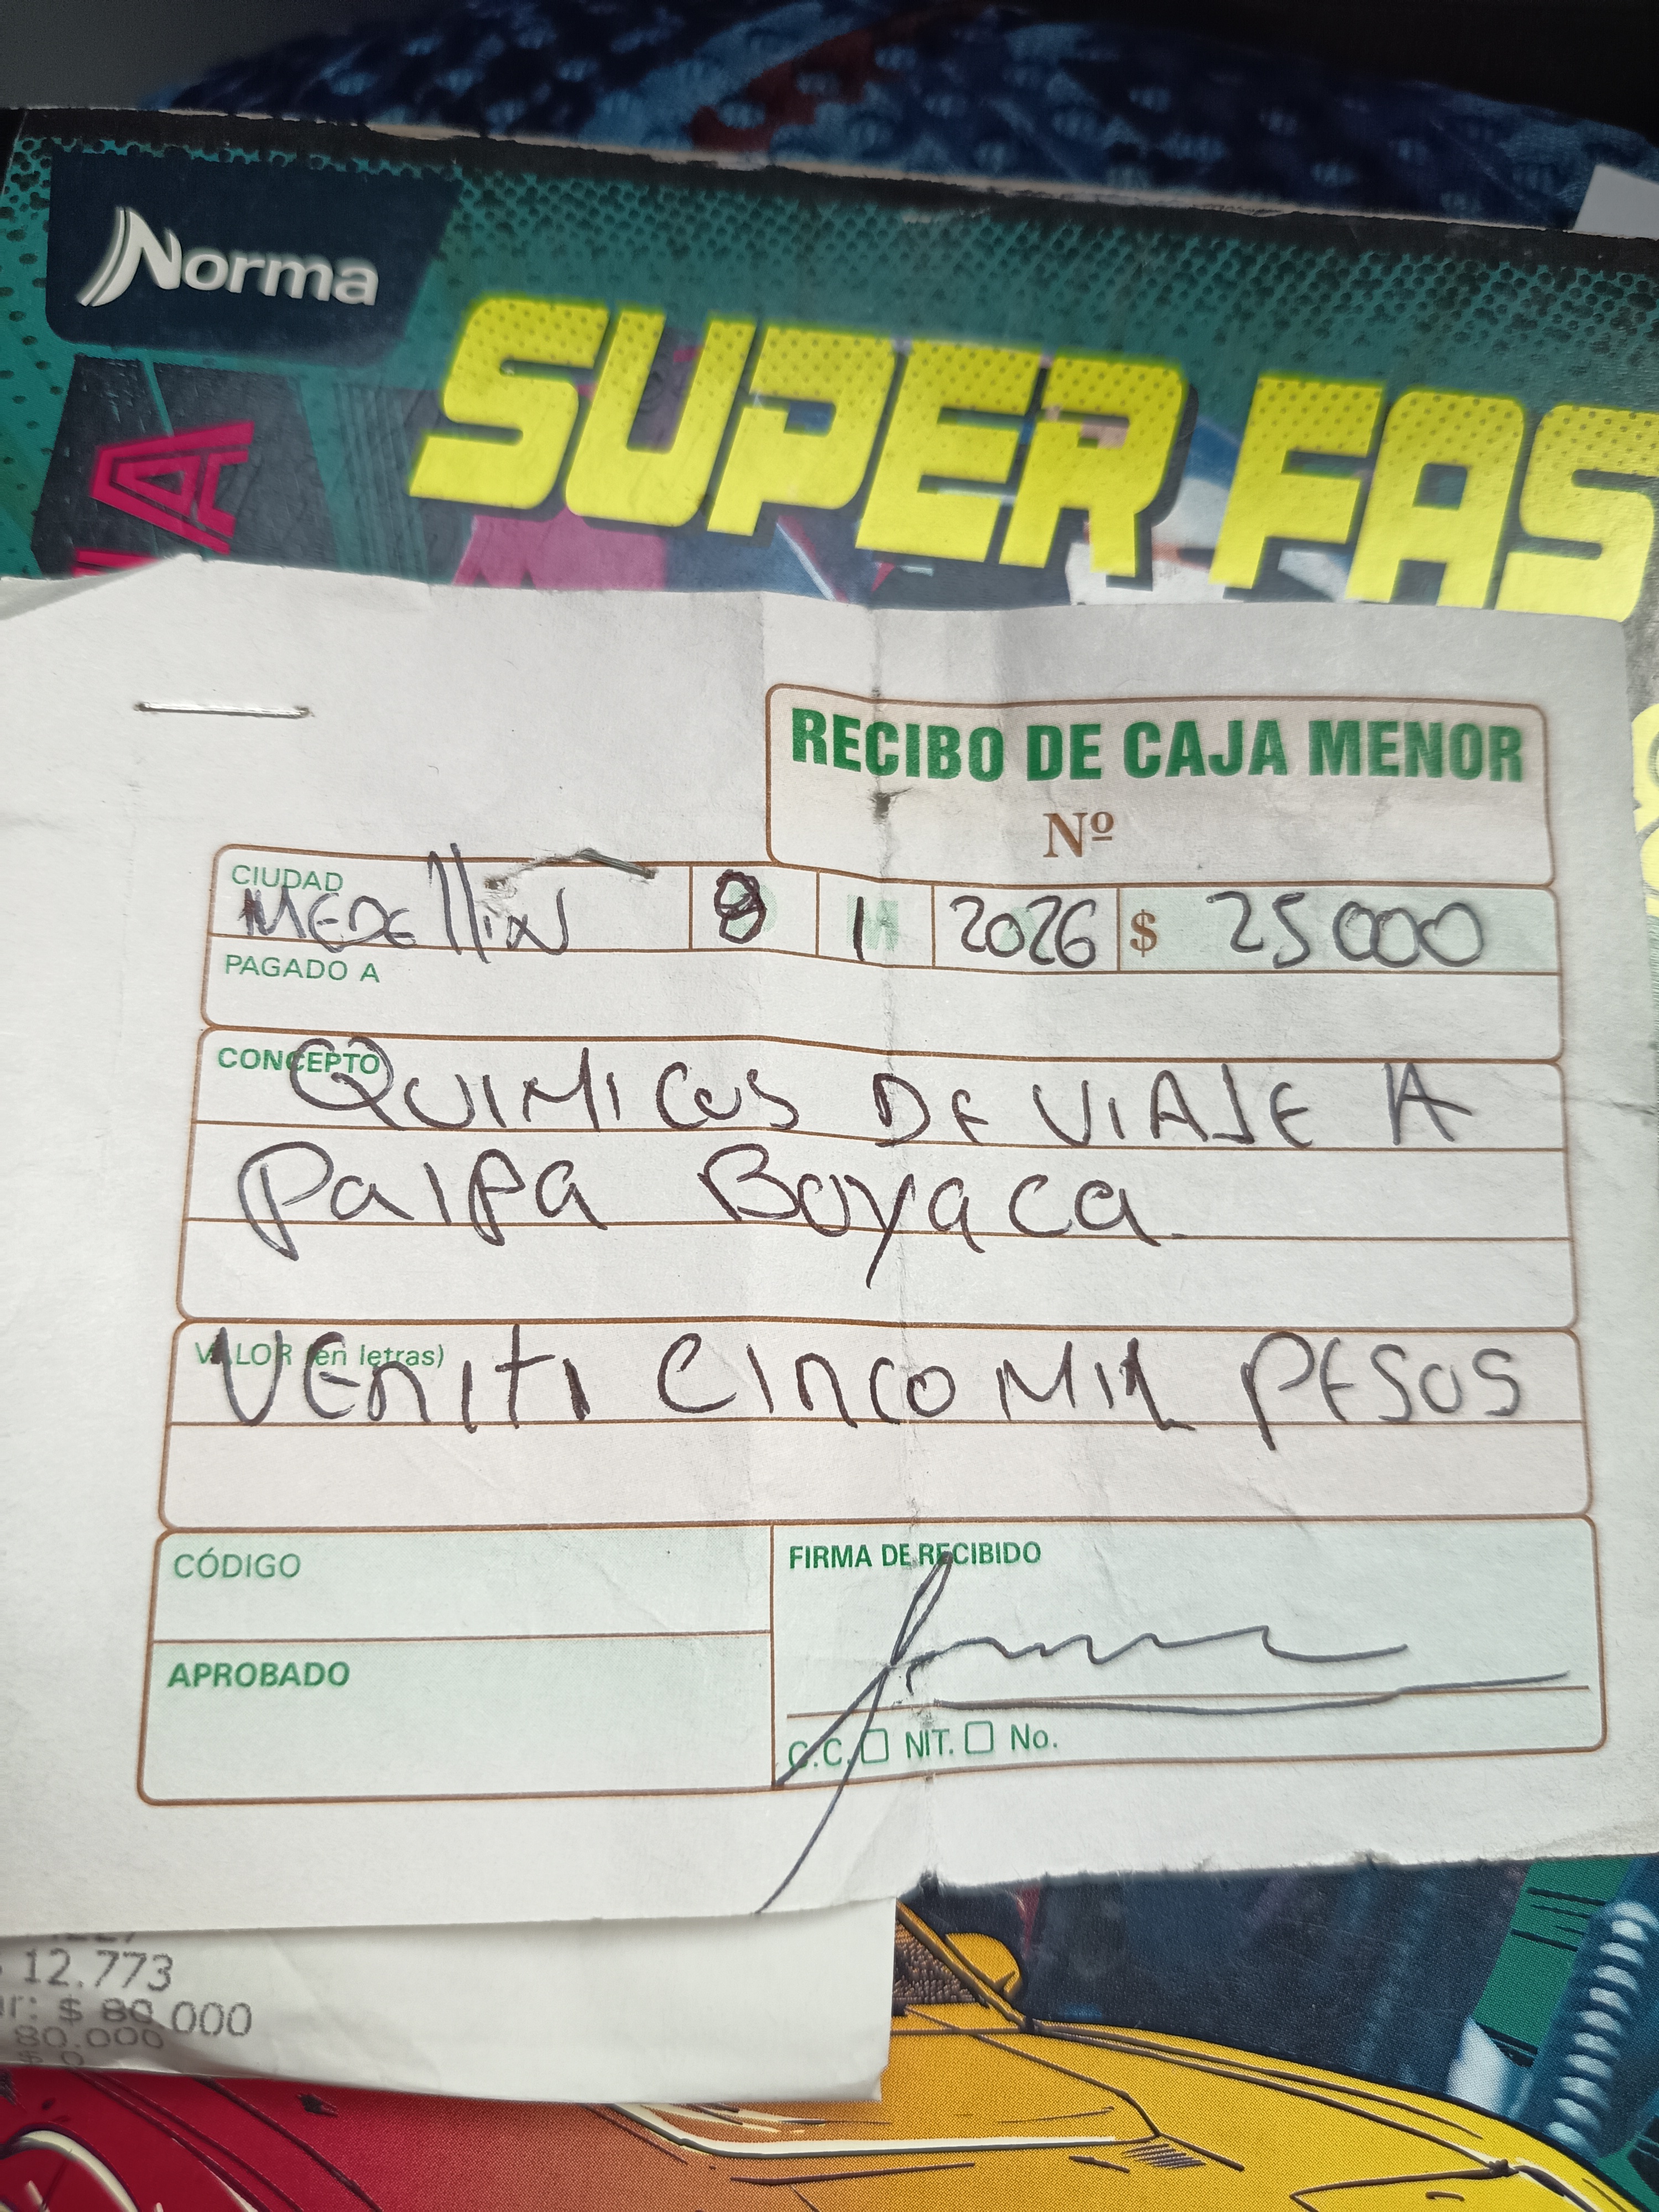 Norma
SUPER FAS
IA
RECIBO DE CAJA MENOR
Nº
CIUDAD
MEDEllIN 1 2026 $ 25000
PAGADO A
CONCEPTO
QUIMICOS DE VIAJE A
PaIPa Boyaca
VALOR (en letras)
VENITI CINCO MIL PESOS
CÓDIGO
FIRMA DE RECIBIDO
APROBADO
C.C. NIT. No.
12.773
r: $ 80.000
80.000
$ 0